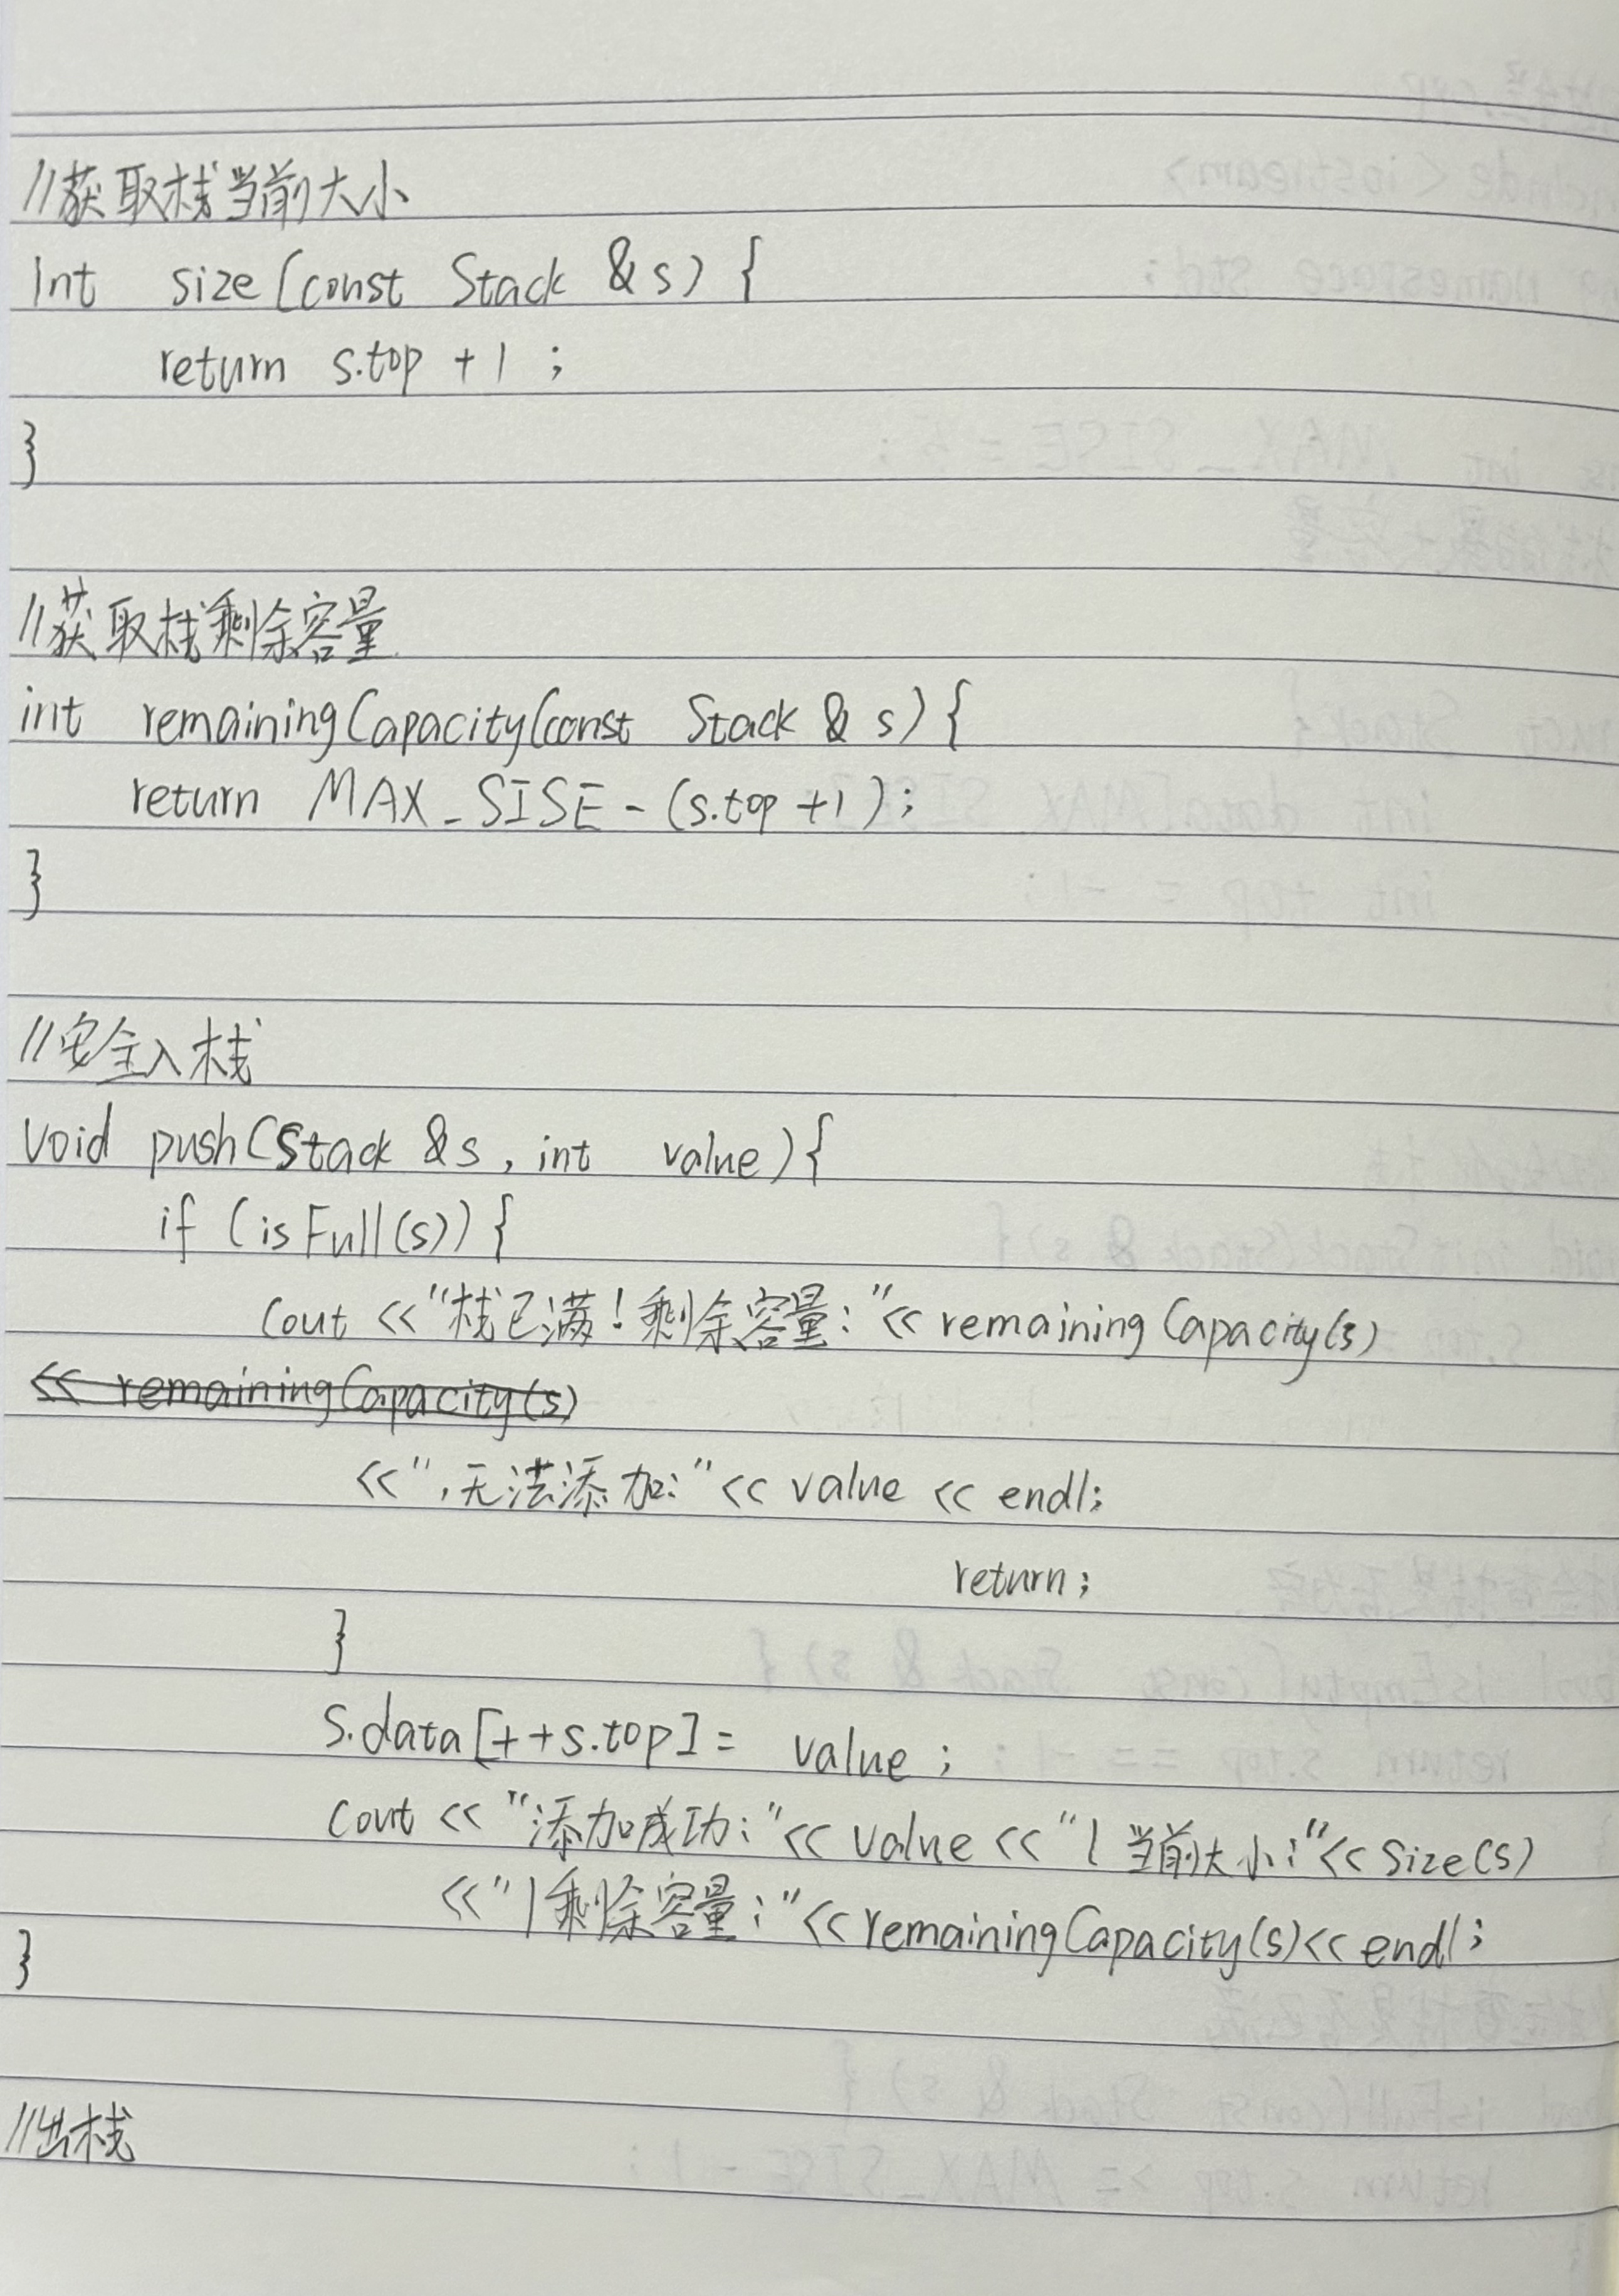 //获取栈当前大小
Int size(const Stack &s) {
return s.top +1 ;
}
//获取栈剩余容量
int remainingCapacity(const Stack & s){
return MAX_SISE-(s.top+1);
}
//安全入栈
void push(Stack &s, int value){
if (isFull(s)){
cout <<"栈已满!剩余容量:"<< remainingCapacity(s)
<< remainingCapacity(s)
<<",无法添加:"<< value << endl;
return;
}
s.data[++s.top]= value;
cout << "添加成功:"<< value <<"| 当前大小:"<< size(s)
<<"|剩余容量:"<<remainingCapacity(s)<< endl;
}
//出栈